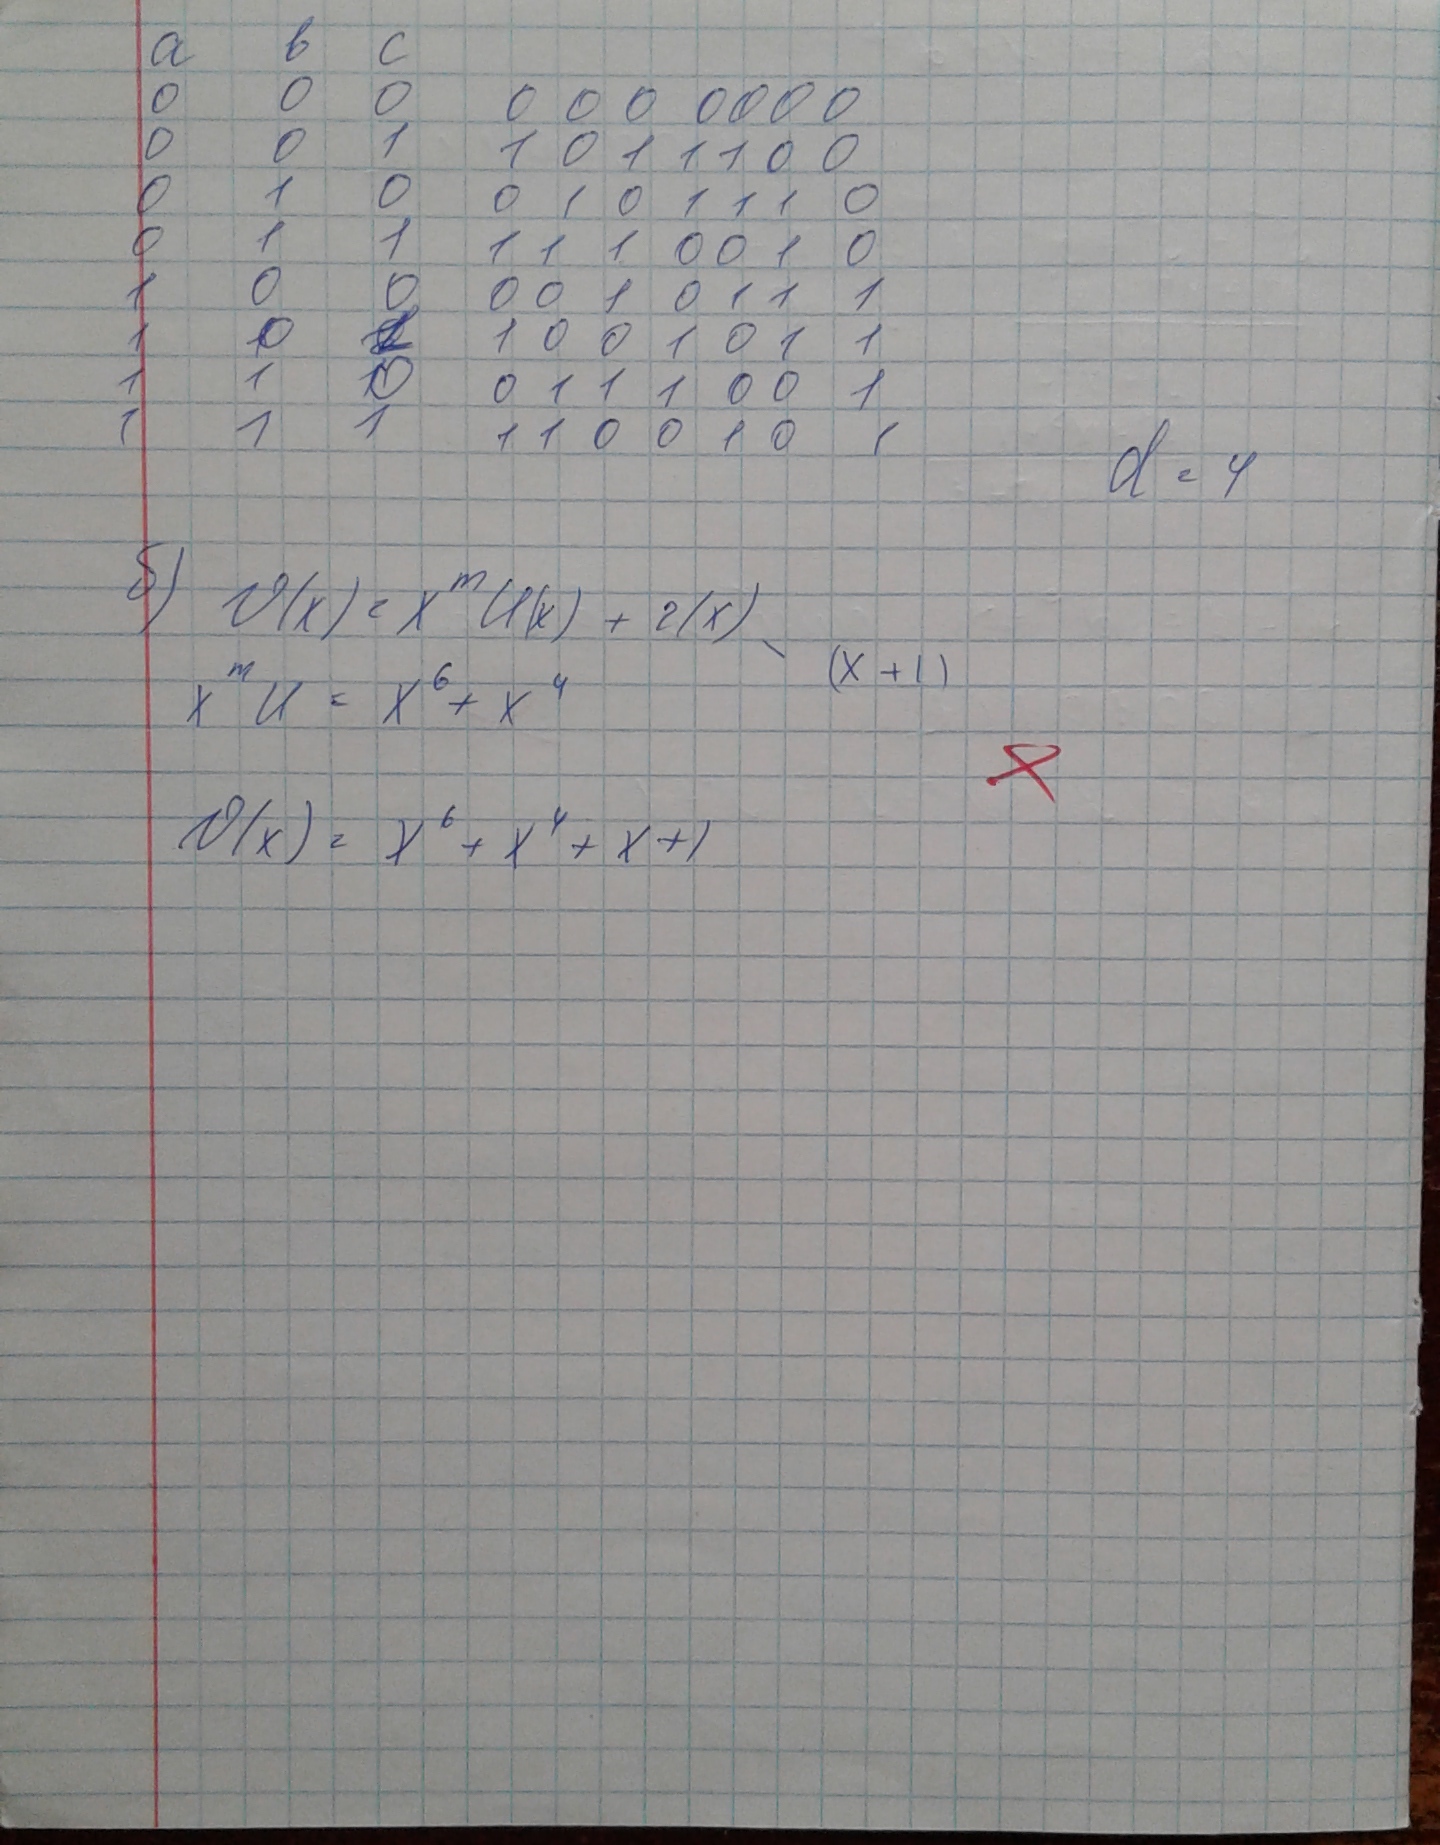 a в c
0 0 0 0 0 0 0 0 0 0
0 0 1 1 0 1 1 1 0 0
0 1 0 0 1 0 1 1 1 0
0 1 1 1 1 1 0 0 1 0
1 0 0 0 0 1 0 1 1 1
1 0 1 0 0 1 0 1 1
1 1 0 0 1 1 1 0 0 1
1 1 1 1 1 0 0 1 0 1
d = 4
б) v(x) = x^m u(x) + r(x)
(x + 1)
x^m u = x^6 + x^4
v(x) = x^6 + x^4 + x + 1